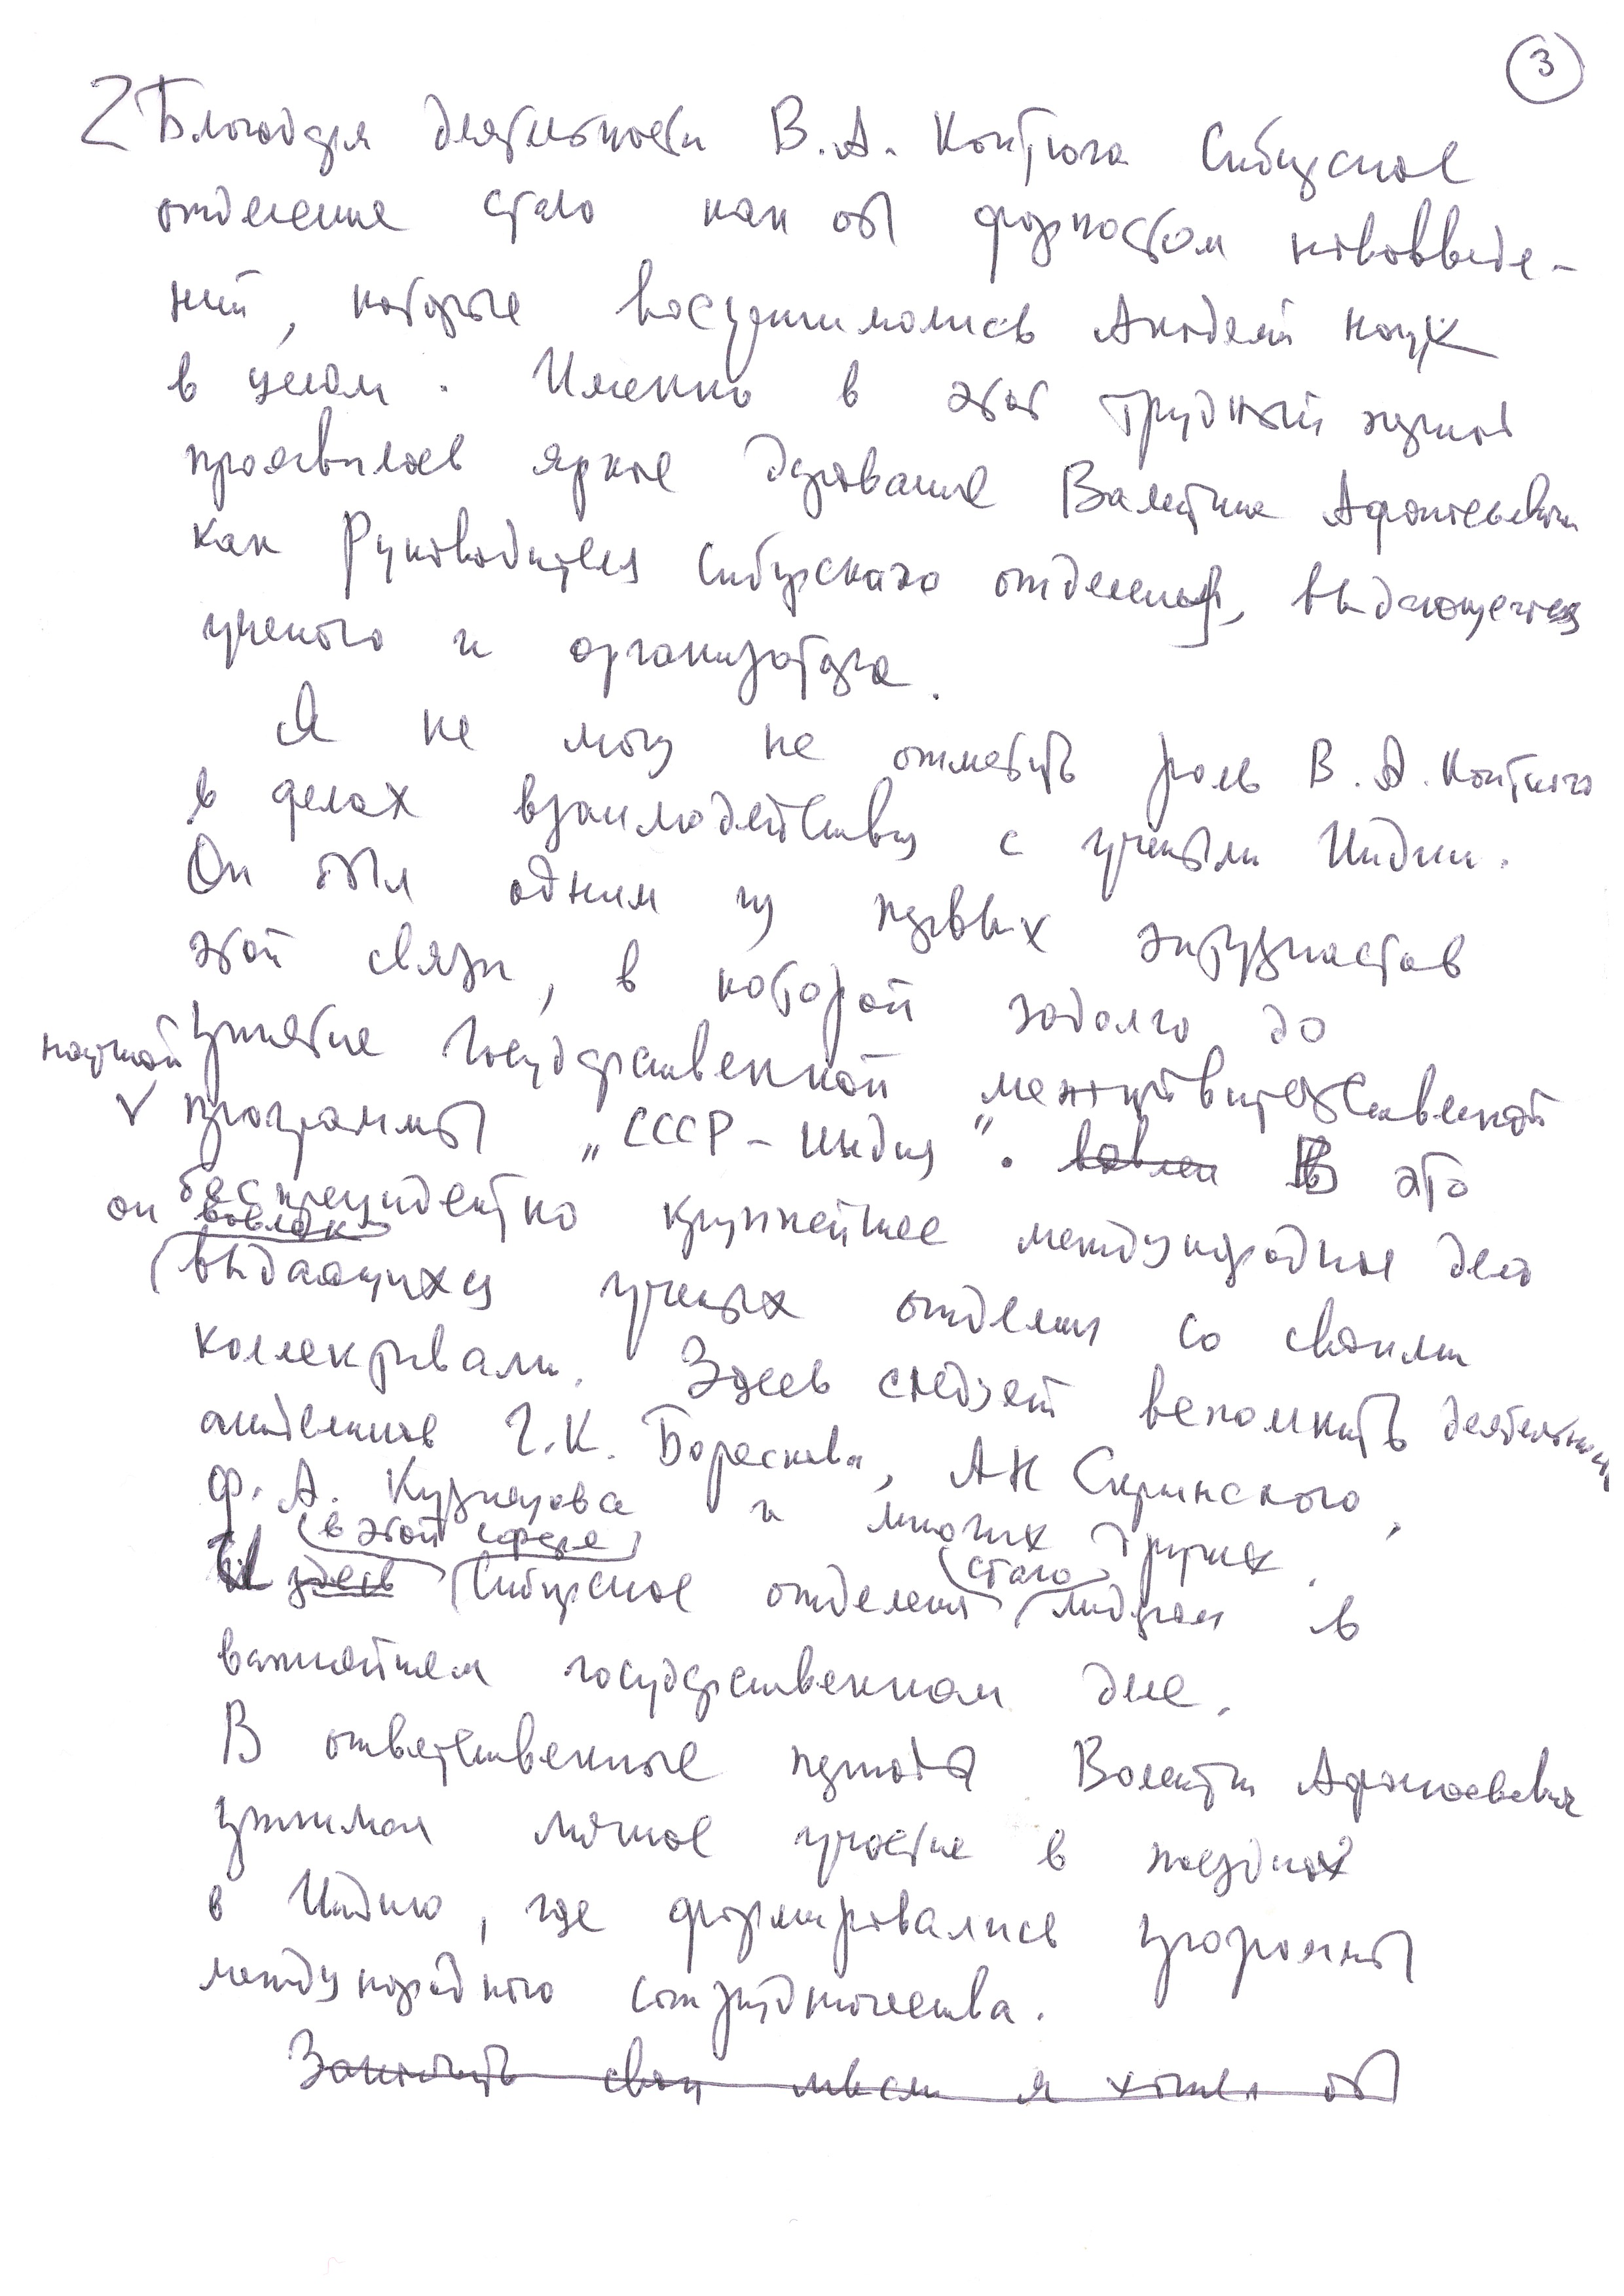 3
Благодаря деятельности В.А. Коптюга Сибирское
отделение стало как бы форпостом нововведе-
ний, которые воспринимались Академией наук
в целом. Именно в этот трудный период
проявилось яркое дарование Валентина Афанасьевича
как руководителя Сибирского отделения, выдающегося
ученого и организатора.
Я не могу не отметить роль В.А. Коптюга
в делах взаимодействия с учеными Индии.
Он был одним из первых энтузиастов
этой связи, в которой задолго до
принятия Государственной межправительственной
научной
программы „СССР – Индия". вовлек В это
беспрецедентно крупнейшее международное дело
он вовлек
выдающихся ученых отделения со своими
коллективами. Здесь следует вспомнить деятельность
академиков Г.К. Борескова, АН Скринского,
Ф.А. Кузнецова и многих других.
в этой сфере стало
И здесь Сибирское отделение лидером в
важнейшем государственном деле.
В ответственные периоды Валентин Афанасьевич
принимал личное участие в поездках
в Индию, где формировались программы
международного сотрудничества.
Закончить свои мысли я хотел бы